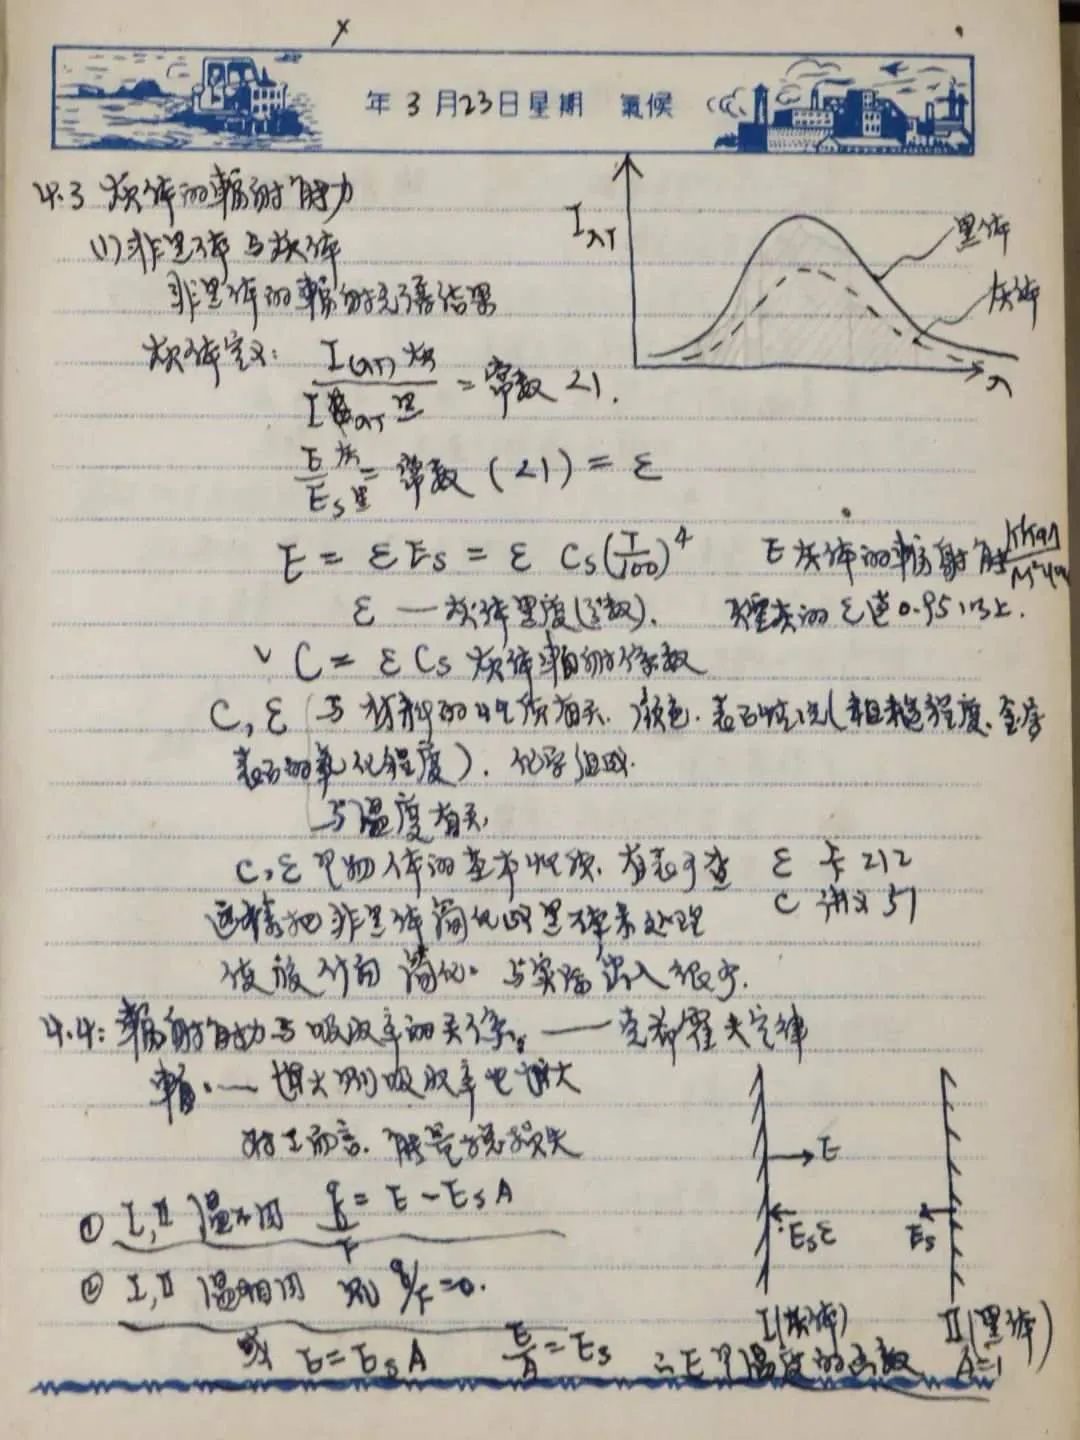 年 3 月 23 日 星期 氣候
4.3 灰体的辐射能力
(1) 非黑体与灰体
非黑体的辐射光谱结果
I λT
黑体
灰体
λ
灰体定义: I(λT)灰 / I λT 黑 = 常数 <1.
E灰 / Es黑 = 常数 (<1) = ε
E = ε Es = ε Cs (T/100)^4
E 灰体的辐射能
ε — 灰体黑度(系数).
的 ε 达 0.95 以上.
C = ε Cs 灰体辐射系数
C, ε 与材料的性质有关. 颜色. 表面情况(粗糙程度. 金属
表面的氧化程度). 化学组成.
与温度有关.
C, ε 是物体的基本性质. 有表可查 ε 卡 212
C 讲义 51
这样把非黑体简化以黑体来处理
简化. 与实际出入很少.
4.4: 辐射能力与吸收率的关系. —— 克希霍夫定律
辐. — 增大 则吸收率也增大
对 I 而言. 能量总损失
① I, II 温不同 q/F = E - Es A
② I, II 温相同 则 q/F = 0.
E
Es ε
Es
I (灰体)
II (黑体)
A=1
或 E = Es A E/A = Es ∴ E 是温度的函数